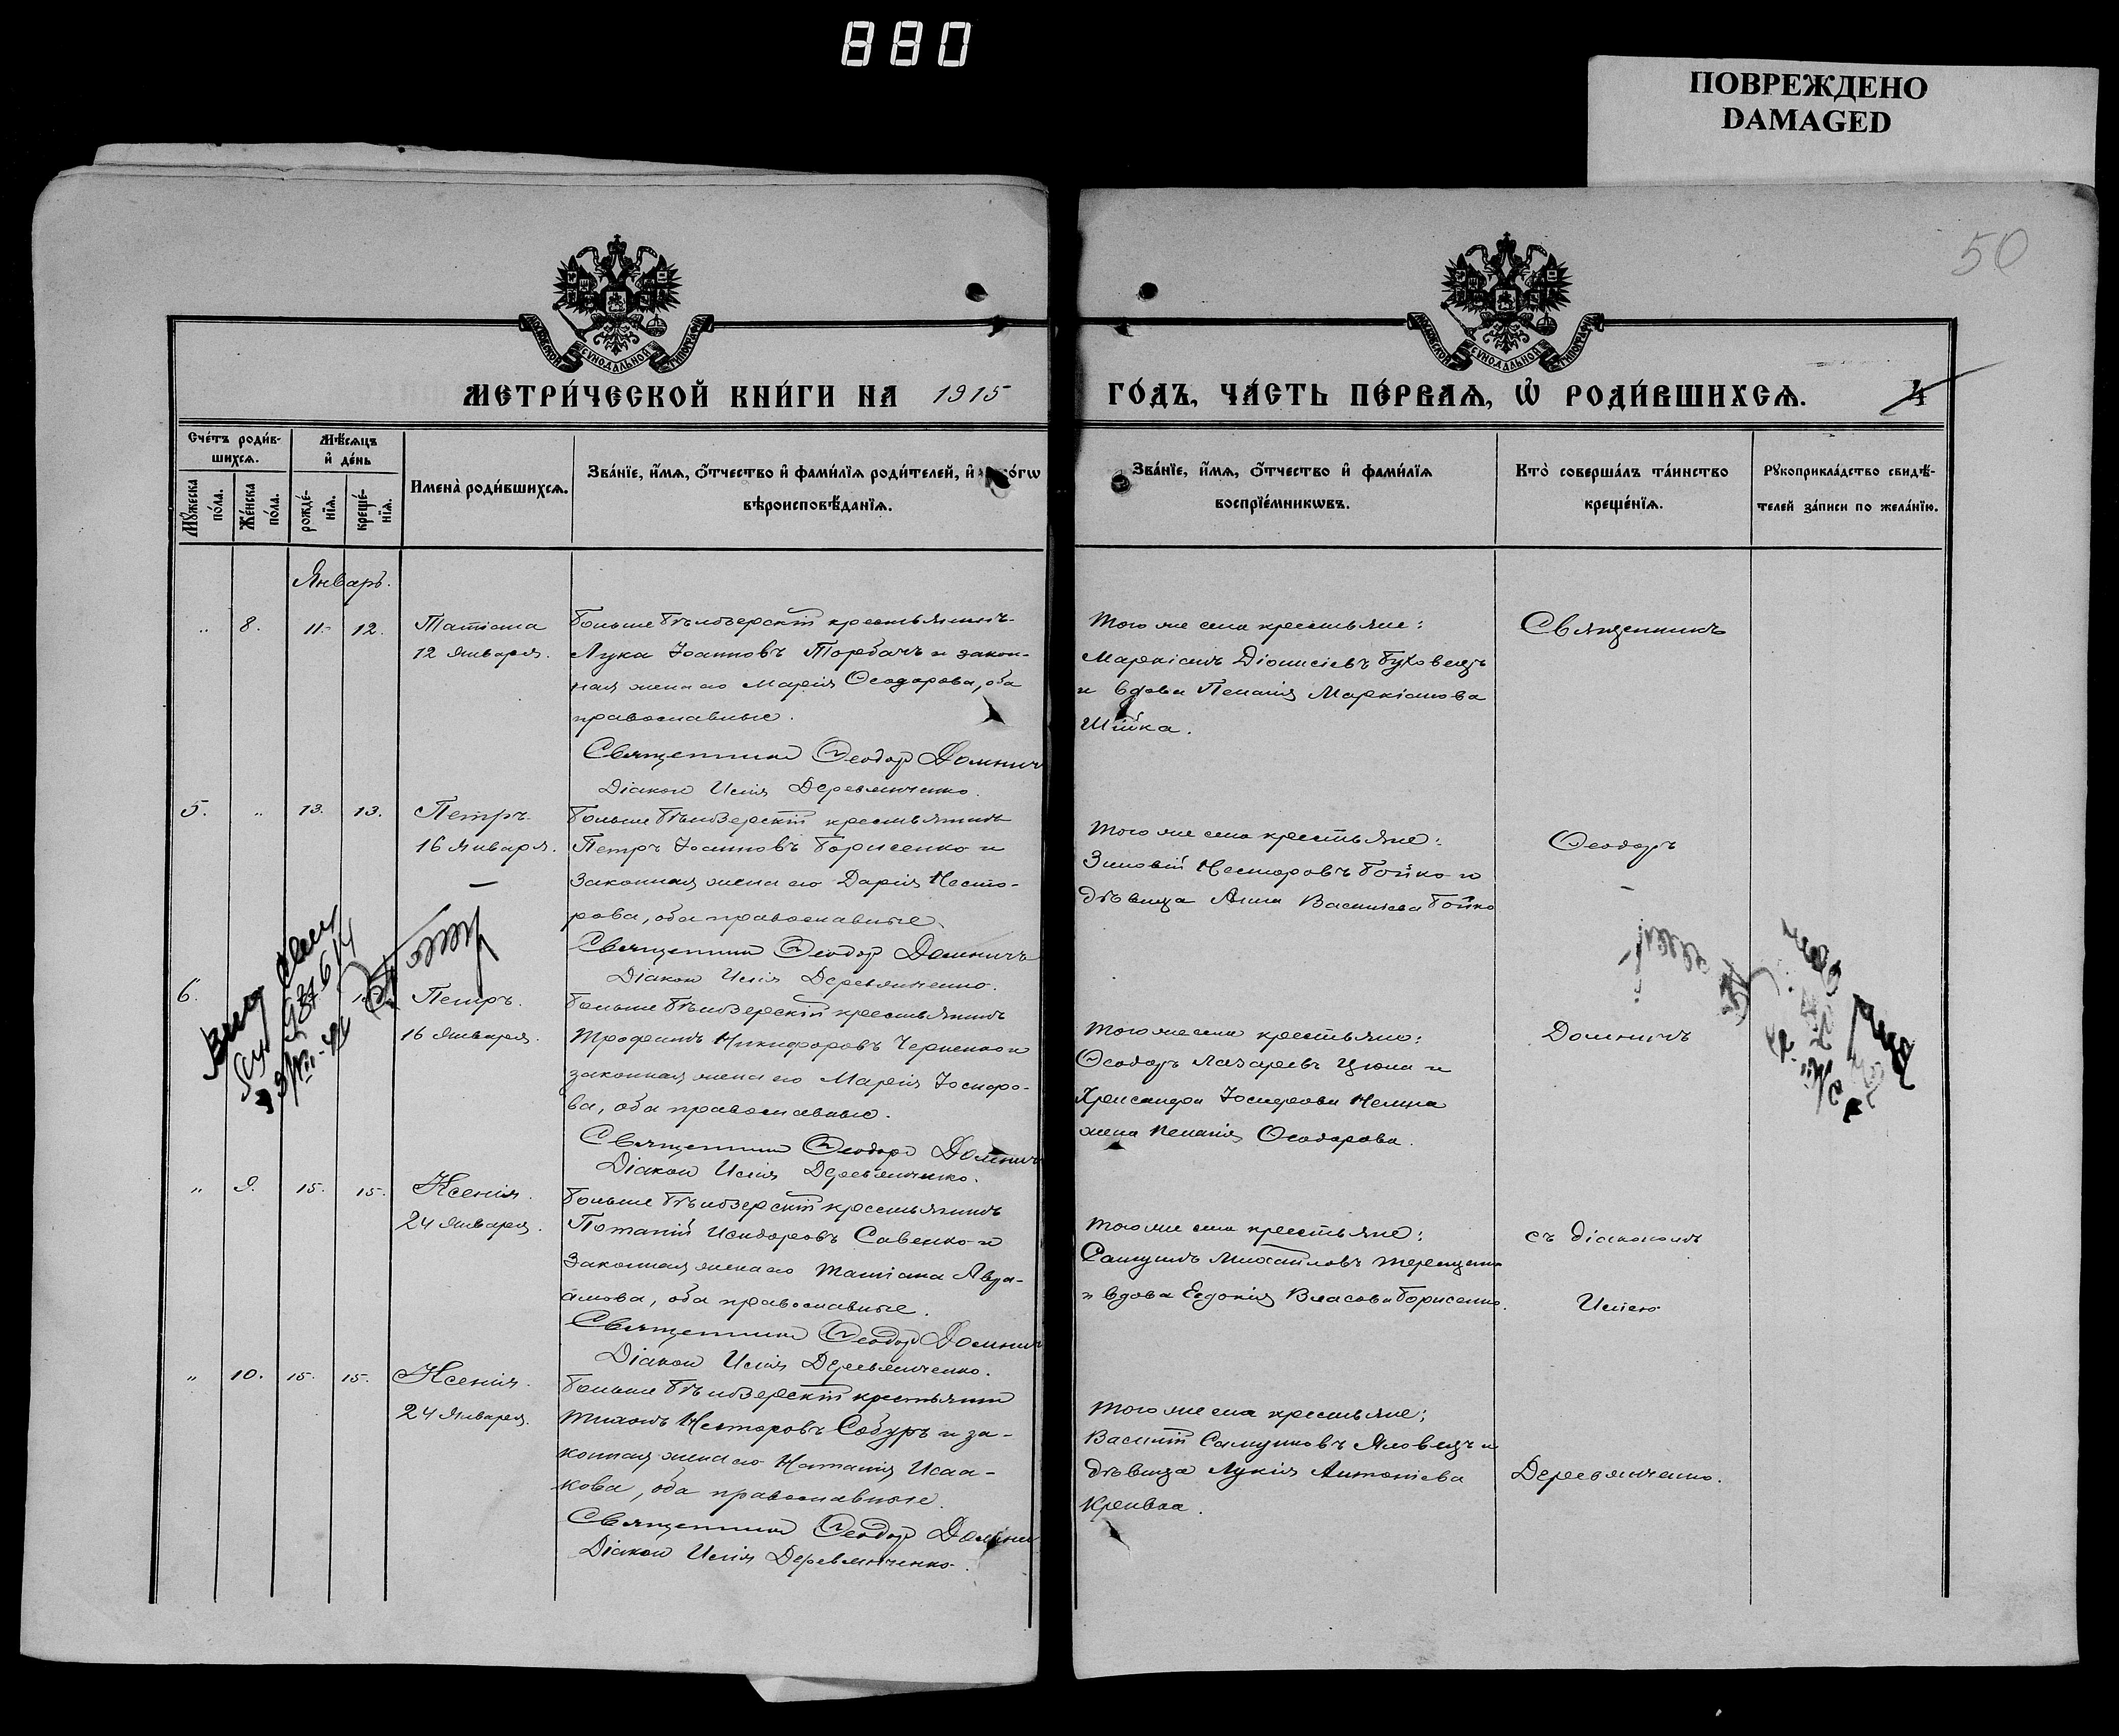 880
ПОВРЕЖДЕНО
DAMAGED
50
МЕТРИ́ЧЕСКОЙ КНИ́ГИ НА 1915
ГО́ДЪ, ЧА́СТЬ ПЕ́РВАѦ, Ѽ РОДИ́ВШИХСѦ. 4
Сче́тъ роди́в-
шихсѧ.
Мѣ́сѧцъ
и҆ де́нь
Имена̀ роди́вшихсѧ.
Зва́нїе, и҆́мѧ, ѻ҆́тчество и҆ фами́лїѧ роди́телей, и҆ о́гѡ
вѣроисповѣ́данїѧ.
Мꙋ́жеска
по́ла.
Же́нска
по́ла.
рожде́-
нїѧ.
креще́-
нїѧ.
Зва́нїе, и҆́мѧ, ѻ҆́тчество и҆ фами́лїѧ
воспрїе́мникѡвъ.
Кто̀ соверша́лъ та́инство
креще́нїѧ.
Рꙋкоприкла́дство свидѣ́-
телей за́писи по жела́нїю.
Январь.
" 8. 11. 12. Татіана
12 Января.
Больше Бѣлозерскій крестьянинъ
Лука Іоанновъ Торбачъ и закон-
ная жена его Марія Ѳеодорова, оба
православные.
Священникъ Ѳеодор Домнич
Діакон Илія Деревянченко.
Того же села крестьяне:
Маркіанъ Діонисіевъ Буховецъ
и вдова Пелагія Маркіанова
Шійка.
Священникъ
5. " 13. 13. Петръ
16 Января.
Больше Бѣлозерскій крестьянинъ
Петръ Іоанновъ Борисенко и
законная жена его Дарія Несто-
рова, оба православные.
Священникъ Ѳеодор Домничъ
Діакон Илія Деревянченко.
Того же села крестьяне:
Зиновій Несторовъ Бойко и
дѣвица Анна Васильева Бойко
Ѳеодоръ
6. Петръ.
16 Января.
Больше Бѣлозерскій крестьянинъ
Трофимъ Никифоровъ Черненко и
законная жена его Марія Іосифо-
ва, оба православные.
Священникъ Ѳеодор Домнич
Діакон Илія Деревянченко.
Того же села крестьяне:
Ѳеодоръ Лазаревъ Цюпа и
Іосифова
жена Пелагія Ѳеодорова.
Домничъ
" 9. 15. 15. Ксенія.
24 Января.
Больше Бѣлозерскій крестьянинъ
Потапій Исидоровъ Савенко и
законная жена его Татіана Авра-
амова, оба православные.
Священникъ Ѳеодор Домнич
Діакон Илія Деревянченко.
Того же села крестьяне:
Самуилъ Михаиловъ
и вдова Евдокія Власова Борисенко.
съ діакономъ
Иліею
" 10. 15. 15. Ксенія.
24 Января.
Больше Бѣлозерскій крестьянин
Тихонъ Несторовъ Собуръ и за-
конная жена его Наталія Исаа-
кова, оба православные.
Священникъ Ѳеодор Домнич
Діакон Илія Деревянченко.
Того же села крестьяне:
Василій Самуиловъ Яловецъ и
дѣвица Лукія Антоніева
Деревянченко.